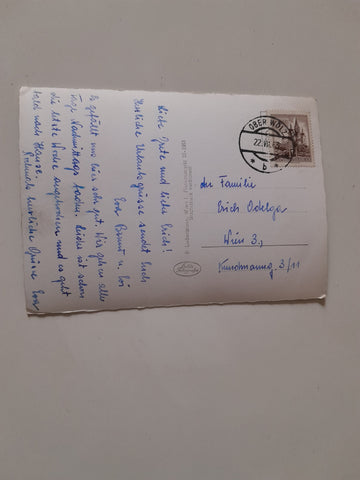 Liebe Grete und lieber Erich!
Herzliche Urlaubsgrüsse sendet Euch
Eva Bruno u.
Es gefällt uns hier sehr gut. Wir gehen alle
Tage Nachmittags baden. Leider ist schon
die letzte Woche angebrochen und es geht
bald nach Hause.
Nochmals herzliche Grüsse Eva
OBER WÖLZ
22.VII.63
b
An Familie
Erich Odelga
Wien 3.,
Kundmanng. 3/11